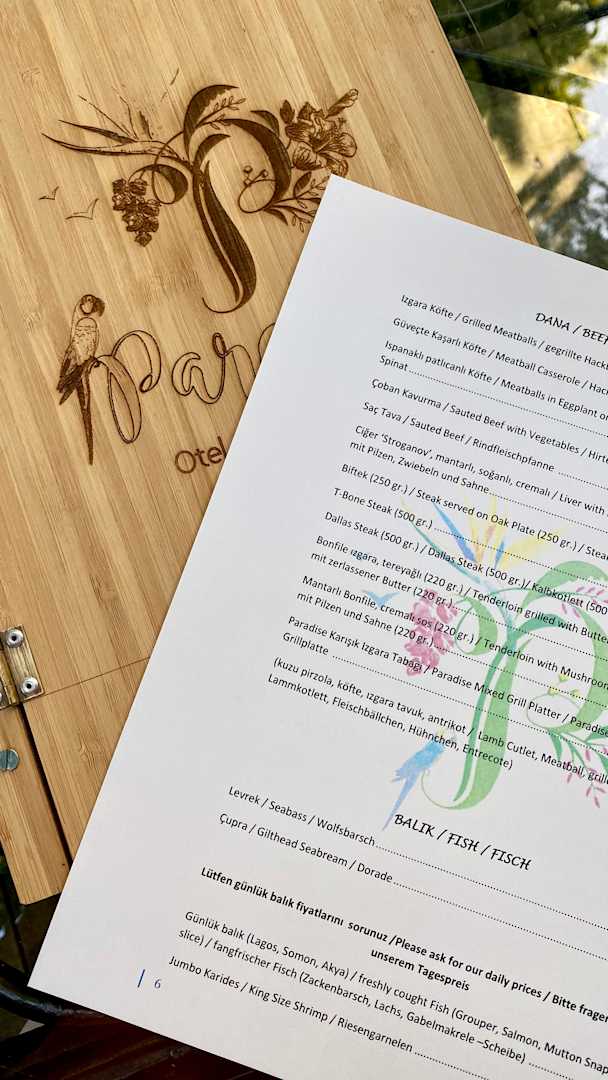 Otel
DANA / BEEF
Izgara Köfte / Grilled Meatballs / gegrillte
Güveçte Kaşarlı Köfte / Meatball Casserole /
Ispanaklı patlıcanlı Köfte / Meatballs in Eggplant
Spinat
Çoban Kavurma / Sauted Beef with Vegetables /
Saç Tava / Sauted Beef / Rindfleischpfanne
Ciğer 'Stroganov', mantarlı, soğanlı, cremalı / Liver with
mit Pilzen, Zwiebeln und Sahne
Biftek (250 gr.) / Steak served on Oak Plate (250 gr.) /
T-Bone Steak (500 gr.)
Dallas Steak (500 gr.) / Dallas Steak (500 gr.)/ Kalbkotlett (500
Bonfile ızgara, tereyağlı (220 gr.) / Tenderloin grilled with
mit zerlassener Butter (220 gr.)
Mantarlı Bonfile, cremalı sos (220 gr.) / Tenderloin with
mit Pilzen und Sahne (220 gr.)
Paradise Karışık Izgara Tabağı / Paradise Mixed Grill Platter /
Grillplatte
(kuzu pirzola, köfte, ızgara tavuk, antrikot / Lamb Cutlet, Meatball,
Lammkotlett, Fleischbällchen, Hühnchen, Entrecote)
BALIK / FISH / FISCH
Levrek / Seabass / Wolfsbarsch
Çupra / Gilthead Seabream / Dorade
Lütfen günlük balık fiyatlarını sorunuz /Please ask for our daily prices / Bitte
unserem Tagespreis
Günlük balık (Lagos, Somon, Akya) / freshly cought Fish (Grouper, Salmon, Mutton
slice) / fangfrischer Fisch (Zackenbarsch, Lachs, Gabelmakrele –Scheibe)
Jumbo Karides / King Size Shrimp / Riesengarnelen
6